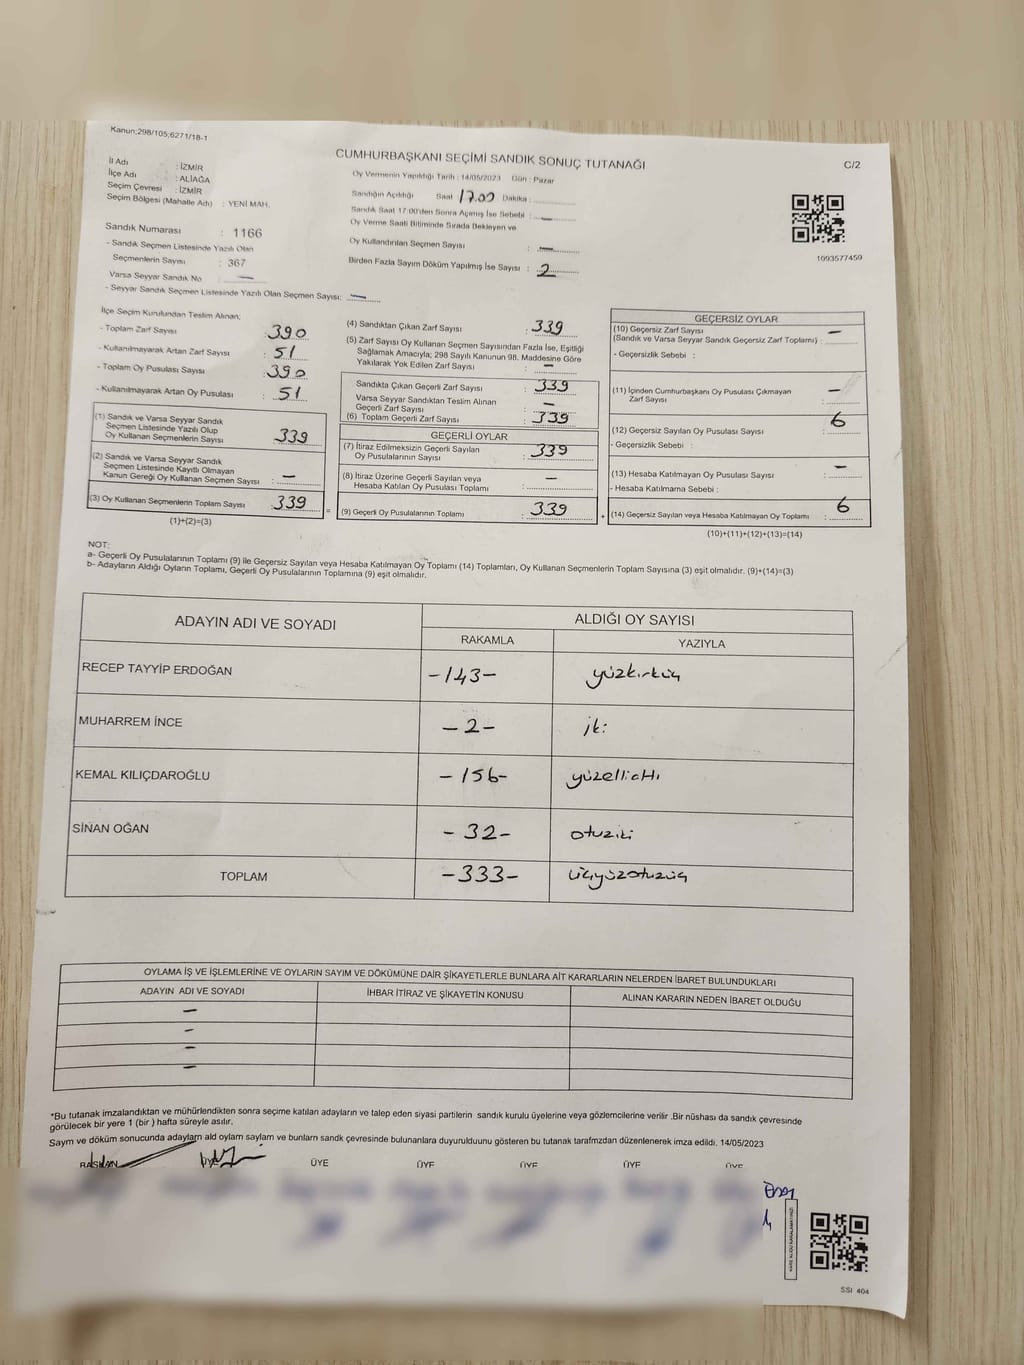 Kanun:298/105;6271/18-1
CUMHURBAŞKANI SEÇİMİ SANDIK SONUÇ TUTANAĞI
C/2
İl Adı : İZMİR
İlçe Adı : ALİAĞA
Seçim Çevresi : İZMİR
Seçim Bölgesi (Mahalle Adı) : YENİ MAH.
Sandık Numarası : 1166
- Sandık Seçmen Listesinde Yazılı Olan
Seçmenlerin Sayısı : 367
Varsa Seyyar Sandık No : —
- Seyyar Sandık Seçmen Listesinde Yazılı Olan Seçmen Sayısı: —
Oy Vermenin Yapıldığı Tarih : 14/05/2023 Gün : Pazar
Sandığın Açıldığı Saat 17.00 Dakika :
Sandık Saat 17:00'den Sonra Açımış İse Sebebi : —
Oy Verme Saati Bitiminde Sırada Bekleyen ve
Oy Kullandırılan Seçmen Sayısı : —
Birden Fazla Sayım Döküm Yapılmış İse Sayısı : 2
1093577459
İlçe Seçim Kurulundan Teslim Alınan;
- Toplam Zarf Sayısı : 390
- Kullanılmayarak Artan Zarf Sayısı : 51
- Toplam Oy Pusulası Sayısı : 390
- Kullanılmayarak Artan Oy Pusulası : 51
(1) Sandık ve Varsa Seyyar Sandık
Seçmen Listesinde Yazılı Olup
Oy Kullanan Seçmenlerin Sayısı : 339
(2) Sandık ve Varsa Seyyar Sandık
Seçmen Listesinde Kayıtlı Olmayan
Kanun Gereği Oy Kullanan Seçmen Sayısı : —
(3) Oy Kullanan Seçmenlerin Toplam Sayısı : 339
(1)+(2)=(3)
=
(4) Sandıktan Çıkan Zarf Sayısı : 339
(5) Zarf Sayısı Oy Kullanan Seçmen Sayısından Fazla İse, Eşitliği
Sağlamak Amacıyla; 298 Sayılı Kanunun 98. Maddesine Göre
Yakılarak Yok Edilen Zarf Sayısı : —
Sandıkta Çıkan Geçerli Zarf Sayısı : 339
Varsa Seyyar Sandıktan Teslim Alınan
Geçerli Zarf Sayısı : —
(6) Toplam Geçerli Zarf Sayısı : 339
GEÇERLİ OYLAR
(7) İtiraz Edilmeksizin Geçerli Sayılan
Oy Pusulalarının Sayısı : 339
(8) İtiraz Üzerine Geçerli Sayılan veya
Hesaba Katılan Oy Pusulası Toplamı : —
(9) Geçerli Oy Pusulalarının Toplamı : 339
+
GEÇERSİZ OYLAR
(10) Geçersiz Zarf Sayısı
(Sandık ve Varsa Seyyar Sandık Geçersiz Zarf Toplamı) : —
- Geçersizlik Sebebi :
(11) İçinden Cumhurbaşkanı Oy Pusulası Çıkmayan
Zarf Sayısı : —
(12) Geçersiz Sayılan Oy Pusulası Sayısı : 6
- Geçersizlik Sebebi :
(13) Hesaba Katılmayan Oy Pusulası Sayısı : —
- Hesaba Katılmama Sebebi :
(14) Geçersiz Sayılan veya Hesaba Katılmayan Oy Toplamı : 6
(10)+(11)+(12)+(13)=(14)
NOT:
a- Geçerli Oy Pusulalarının Toplamı (9) İle Geçersiz Sayılan veya Hesaba Katılmayan Oy Toplamı (14) Toplamları, Oy Kullanan Seçmenlerin Toplam Sayısına (3) eşit olmalıdır. (9)+(14)=(3)
b- Adayların Aldığı Oyların Toplamı, Geçerli Oy Pusulalarının Toplamına (9) eşit olmalıdır.
ADAYIN ADI VE SOYADI
ALDIĞI OY SAYISI
RAKAMLA YAZIYLA
RECEP TAYYİP ERDOĞAN -143- yüzkırküç
MUHARREM İNCE -2- iki
KEMAL KILIÇDAROĞLU -156- yüzellialtı
SİNAN OĞAN -32- otuziki
TOPLAM -333- üçyüzotuzüç
OYLAMA İŞ VE İŞLEMLERİNE VE OYLARIN SAYIM VE DÖKÜMÜNE DAİR ŞİKAYETLERLE BUNLARA AİT KARARLARIN NELERDEN İBARET BULUNDUKLARI
ADAYIN ADI VE SOYADI İHBAR İTİRAZ VE ŞİKAYETİN KONUSU ALINAN KARARIN NEDEN İBARET OLDUĞU
—
—
—
—
*Bu tutanak imzalandıktan ve mühürlendikten sonra seçime katılan adayların ve talep eden siyasi partilerin sandık kurulu üyelerine veya gözlemcilerine verilir .Bir nüshası da sandık çevresinde
görülecek bir yere 1 (bir ) hafta süreyle asılır.
Sayım ve döküm sonucunda adayların ald oyların sayları ve bunların sandk çevresinde bulunanlara duyurulduunu gösteren bu tutanak tarafmzdan düzenlenerek imza edildi. 14/05/2023
BAŞKAN ÜYE ÜYE ÜYE ÜYE ÜYE
SSI 404